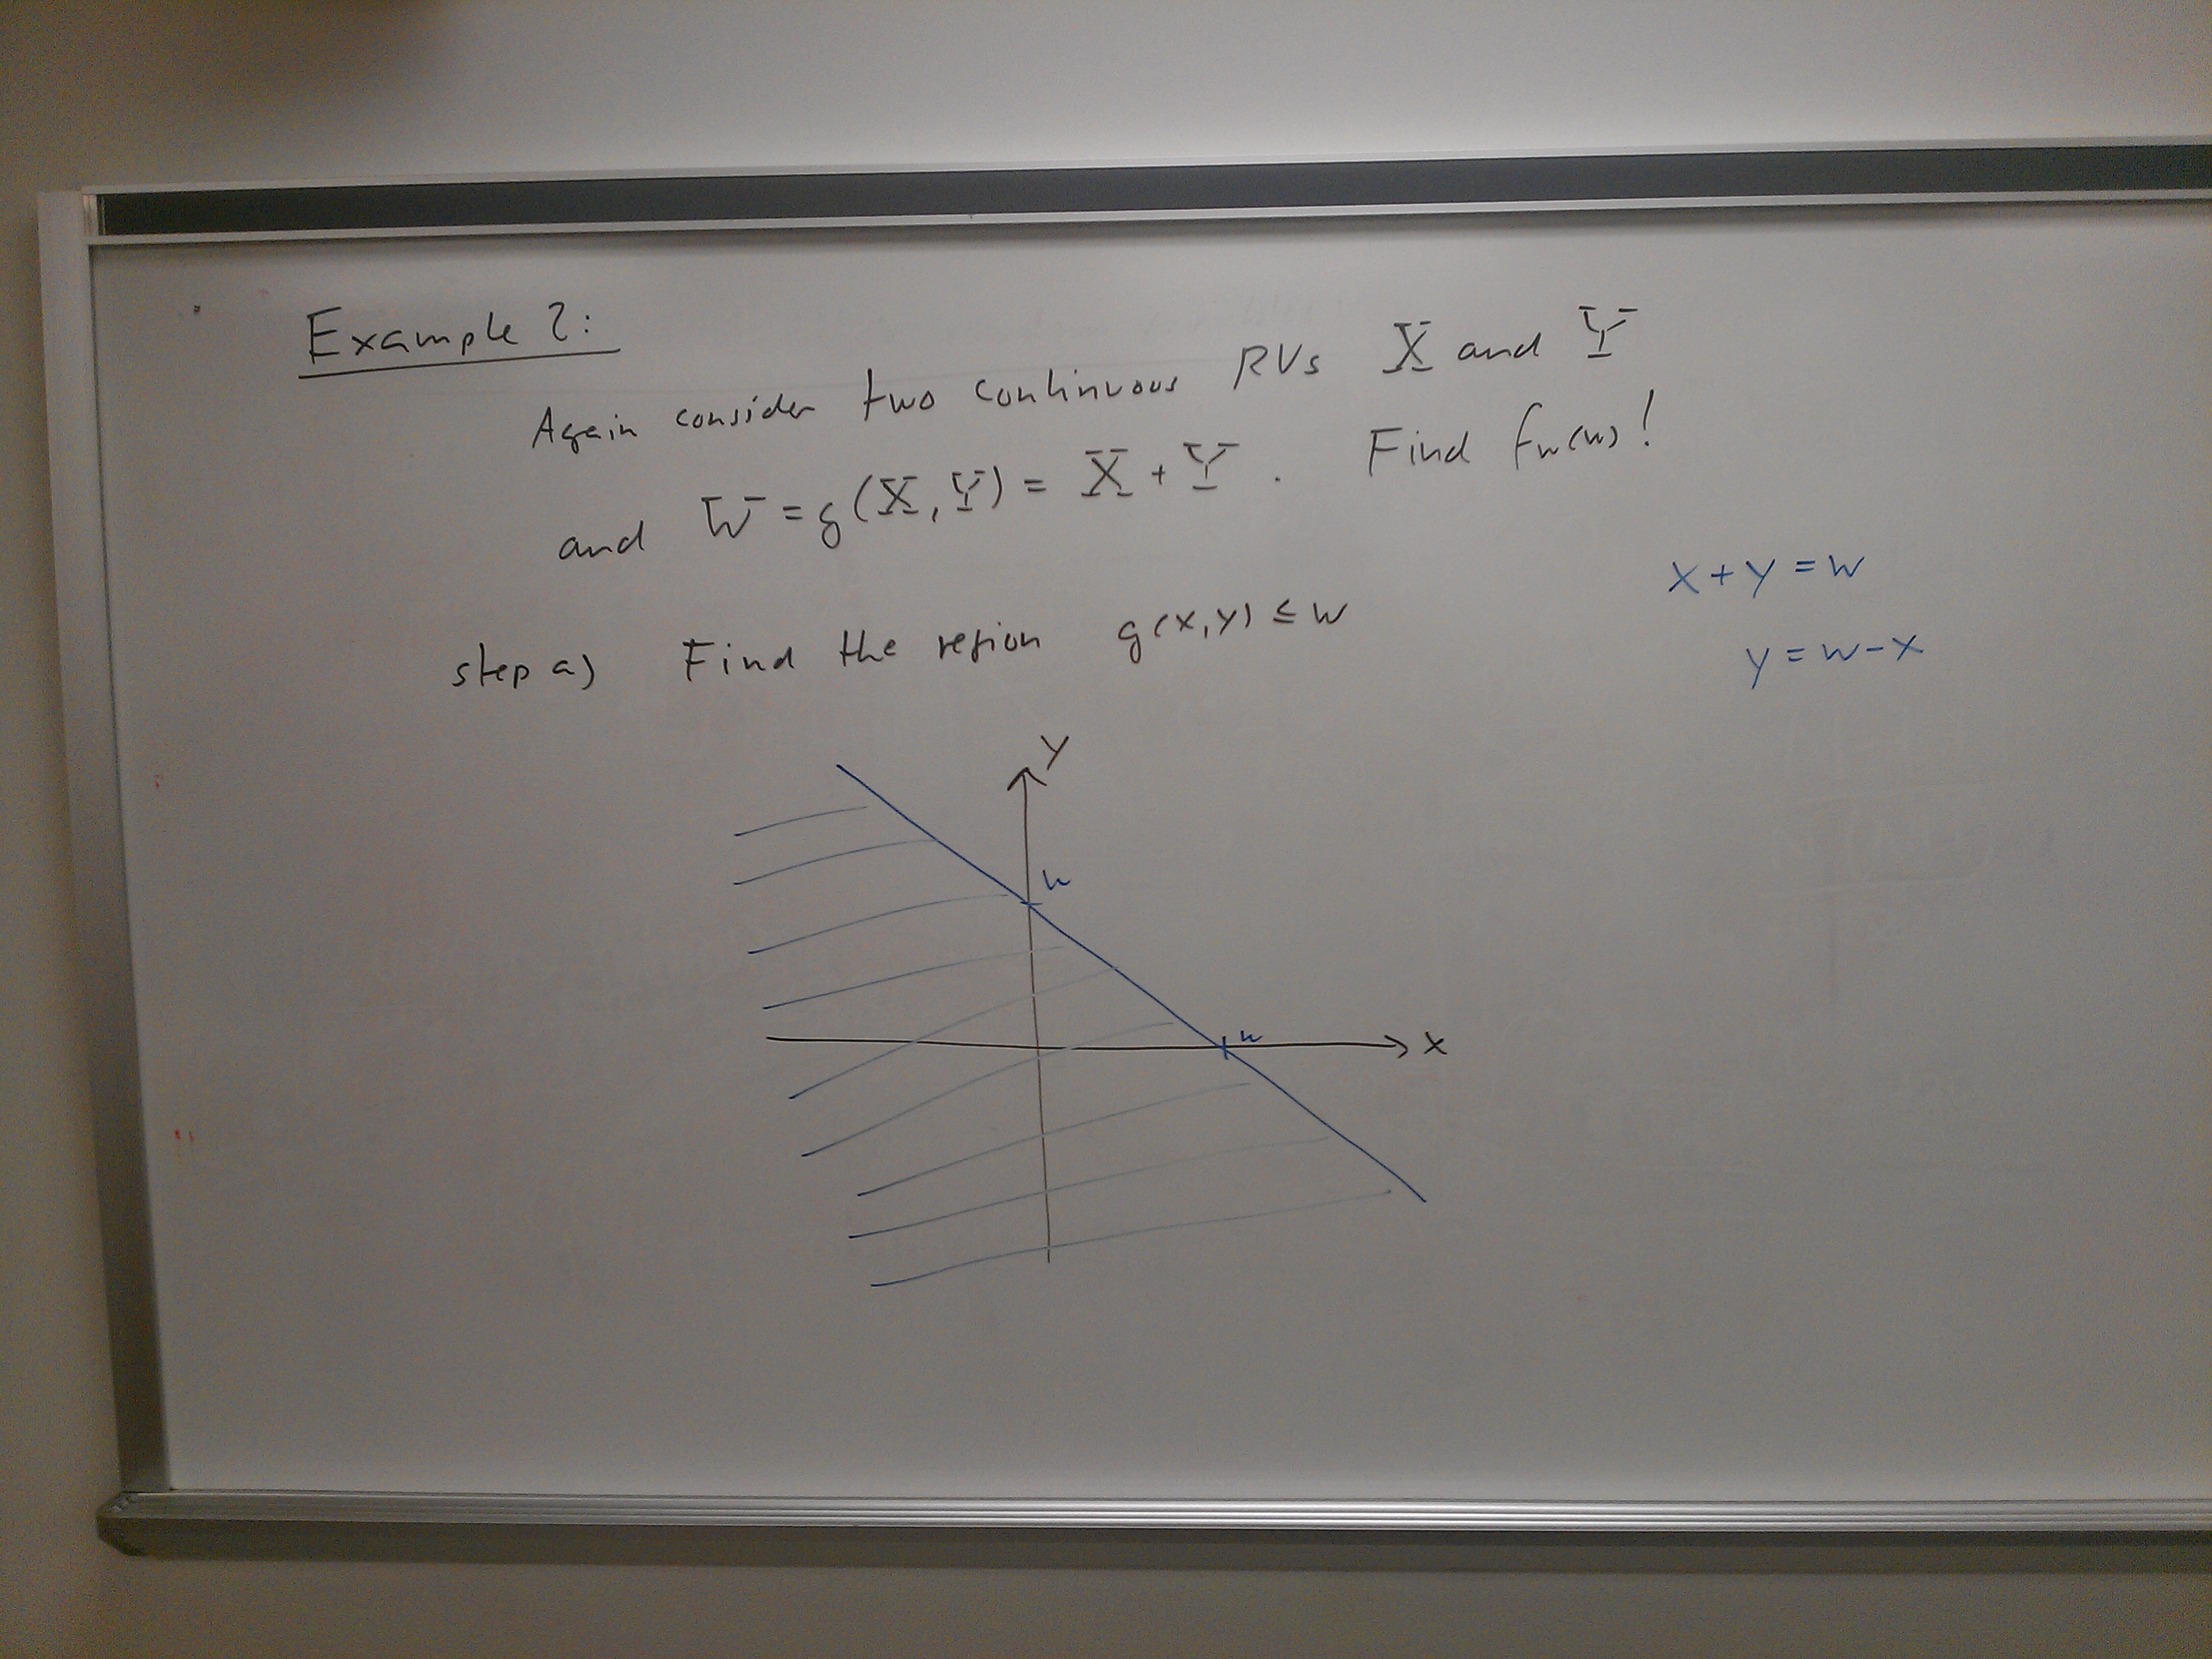 Example 2:
Again consider two continuous RVs X and Y
and W = g(X, Y) = X + Y . Find fw(w)!
x + y = w
y = w - x
step a) Find the region g(x,y) ≤ w
y
w
w
x